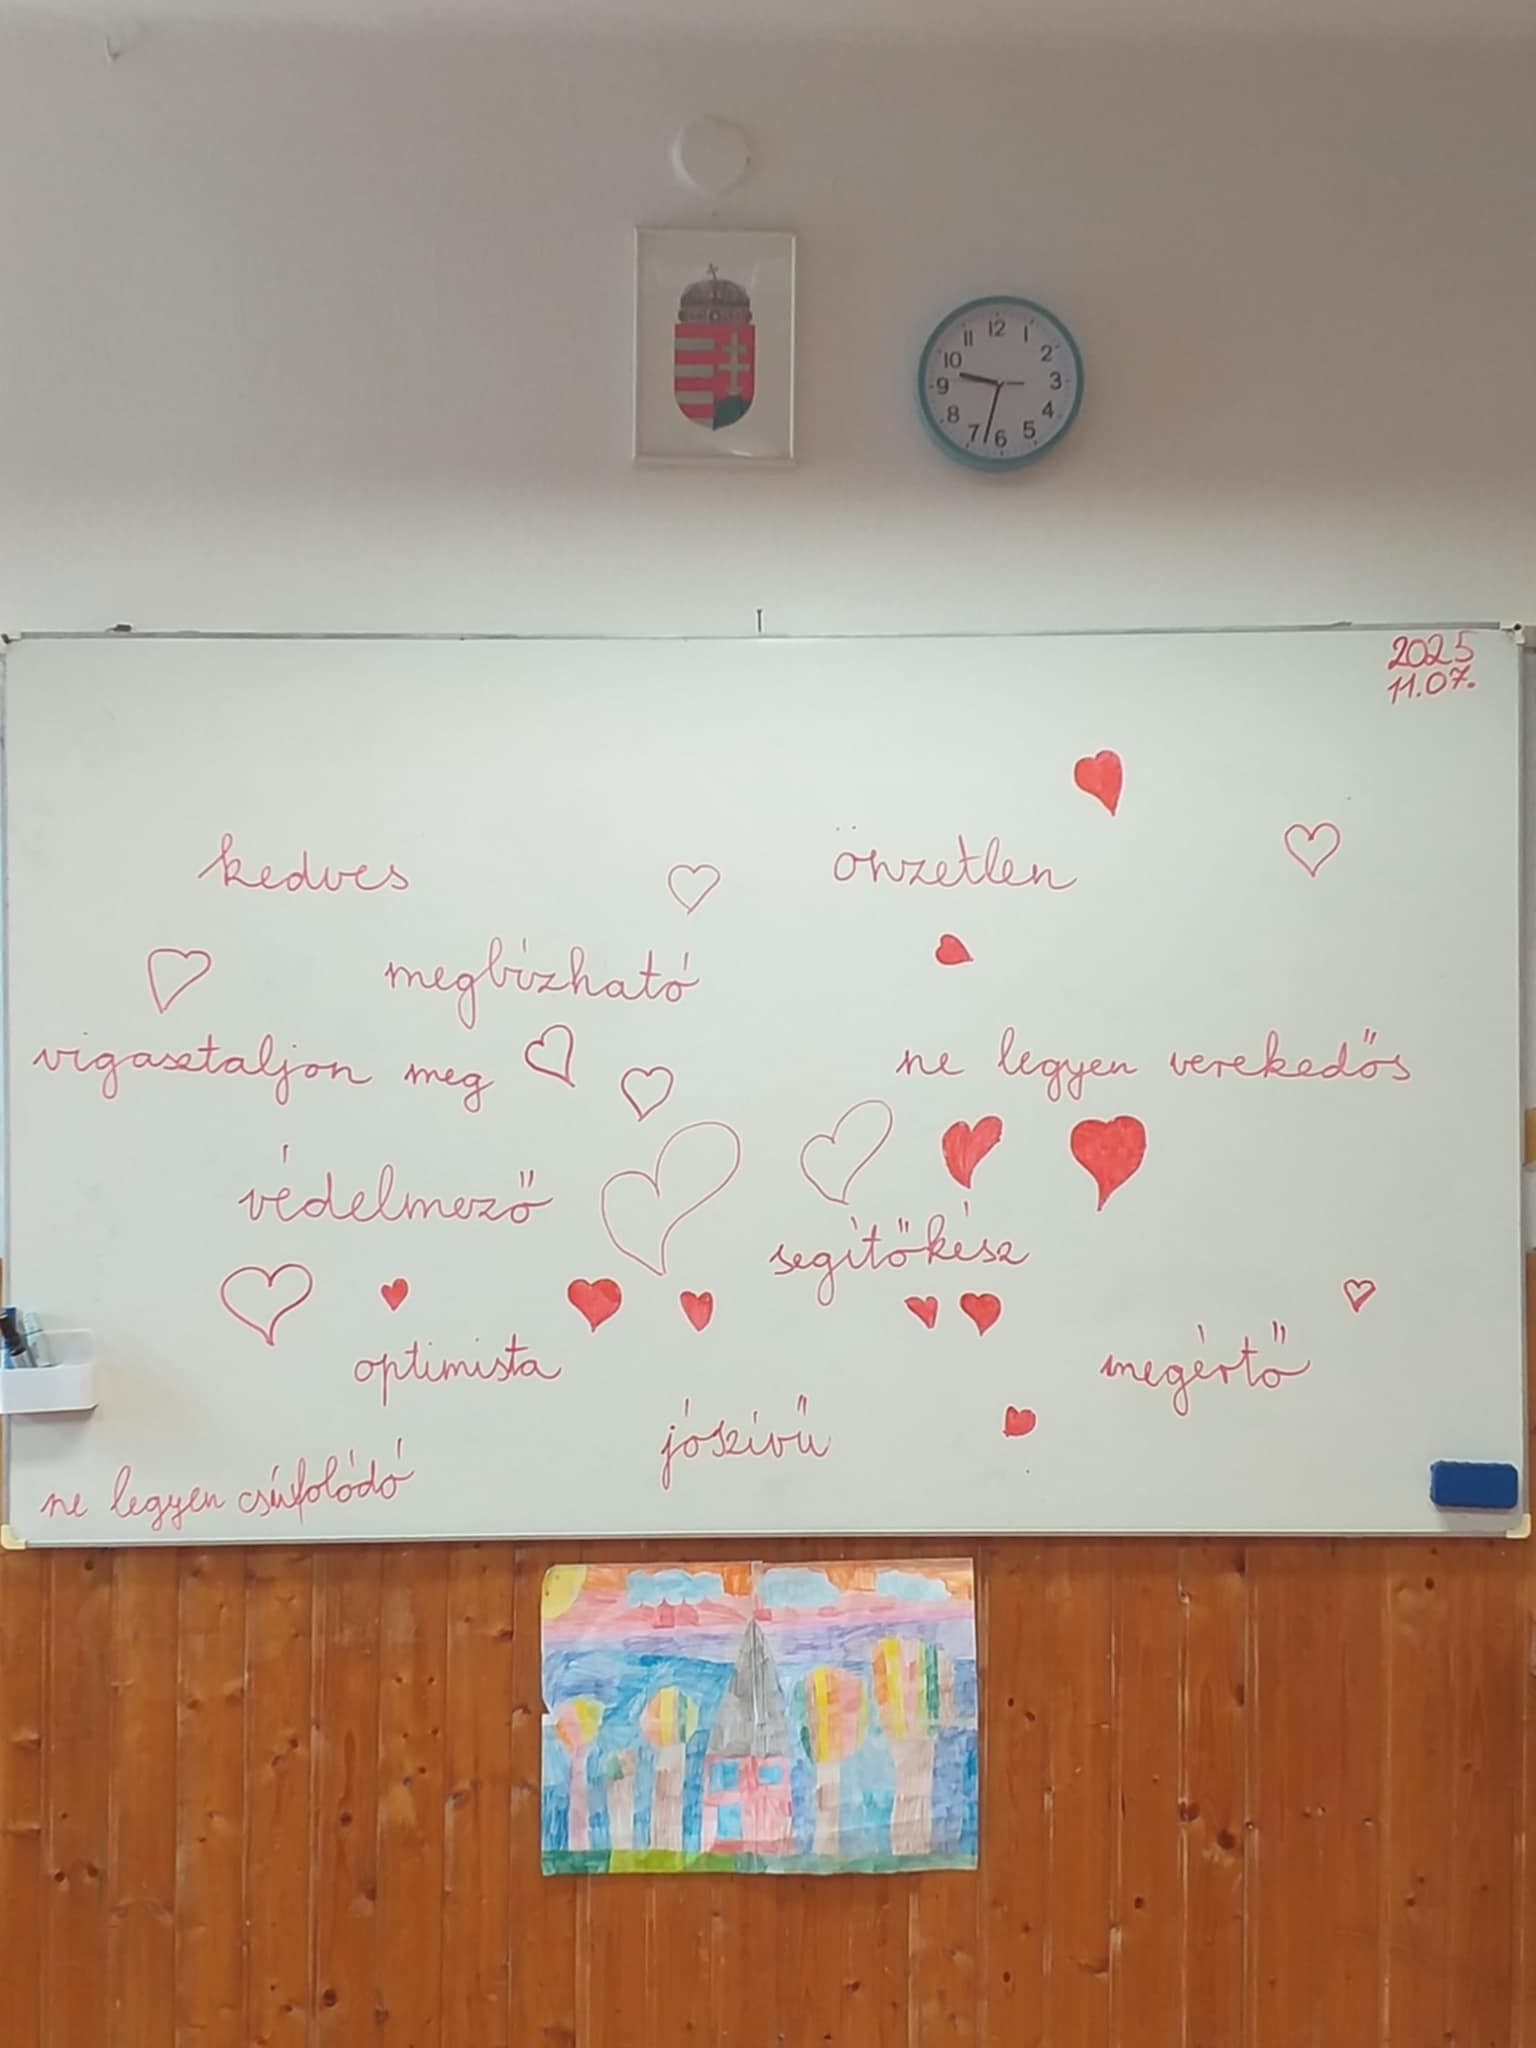 12
1
2
3
4
5
6
7
8
9
10
11
2025
11.07.
kedves
önzetlen
megbízható
vigasztaljon meg
ne legyen verekedős
védelmező
segítőkész
optimista
megértő
jószívű
ne legyen csúfolódó